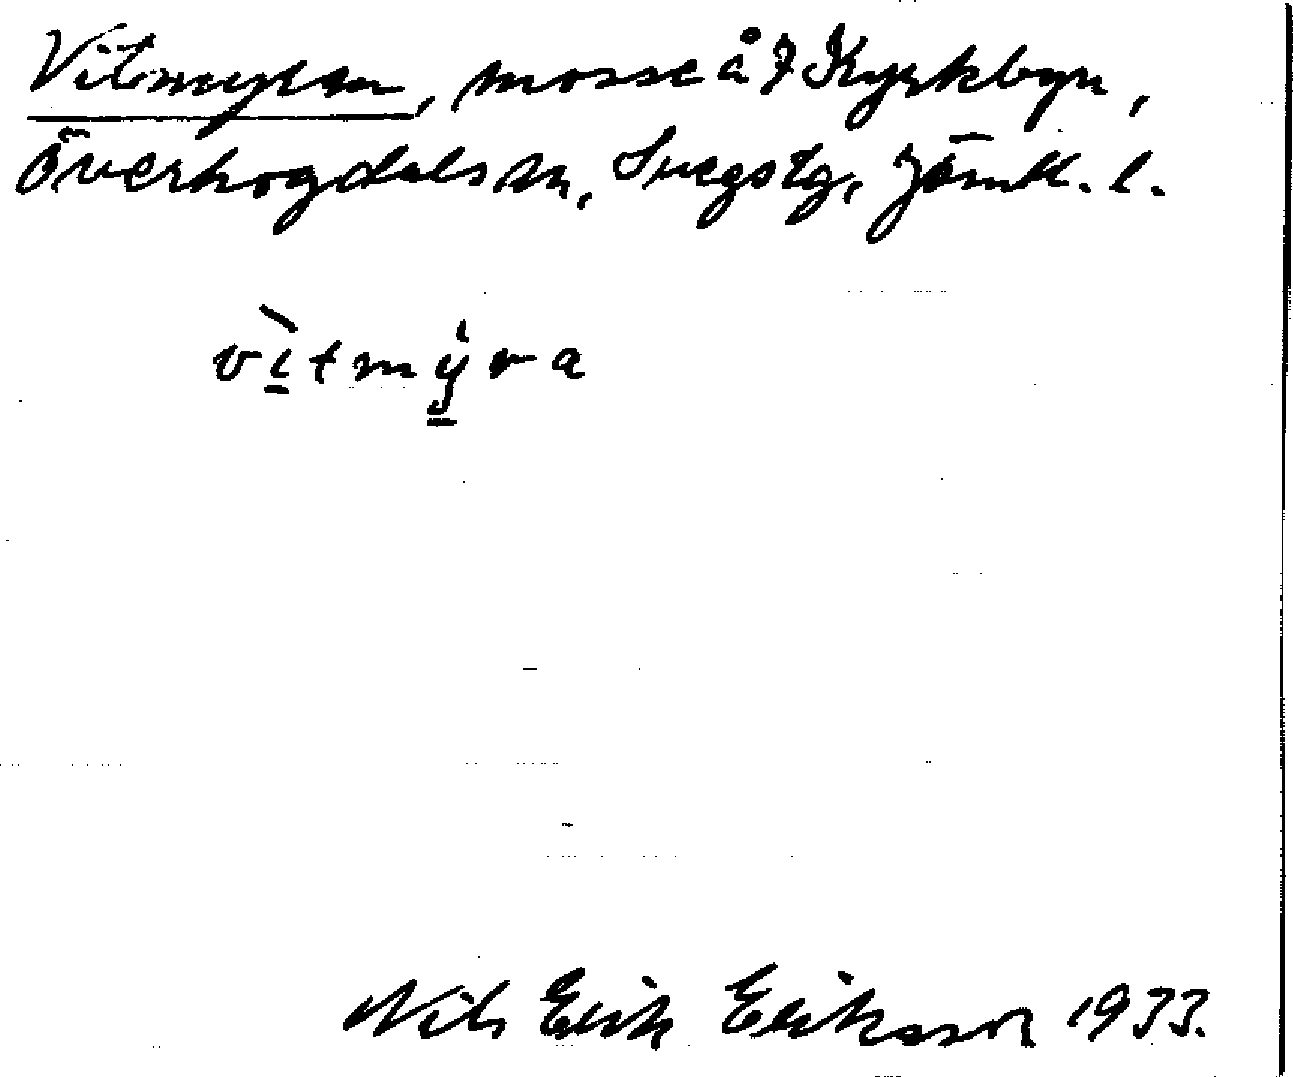 Vitmyran, mosse å 7 Kyrkbyn,
Överhogdals sn, Svegs tg, Jämtl. l.
vìtmy̍ra
Nils Erik Eriksson 1933.